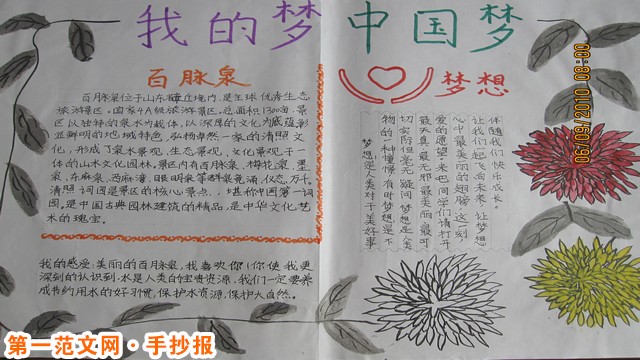 我的梦 中国梦
百脉泉
百脉泉位于山东 境内,是全球优秀生态
旅游景区、国家4A级旅游景区,总面积1300亩,景
区以独特的泉水为载体,以深厚的文化为底蕴,彰
显鲜明的地域特色,弘扬卓然一家的清照文
化,形成了泉水景观,生态景观,文化景观于一
体的山水文化园林。景区内有百脉泉、梅花泉、墨
泉、东麻湾、西麻湾、眼明泉等 泉,仪态万千。
清照词园是景区的核心景点, 堪称中国第一词
园。是中国古典园林建筑的精品,是中华文化艺
术的瑰宝。
我的感受:美丽的百脉泉,我喜欢你!你使我更
深刻的认识到:水是人类的宝贵资源,我们一定要养
成节约用水的好习惯,保护水资源,保护大自然。
梦想
梦想是人类对于美好事
物的一种憧憬,有时梦想是不
切实际但毫无疑问,梦想是人类
最天真最无邪最美丽最可
爱的愿望,来吧!同学们请打开
心中最美丽的翅膀,这一刻,
让我们起飞向未来,让梦想
伴随我们快乐成长。
06/09/2010 08:00
第一范文网·手抄报